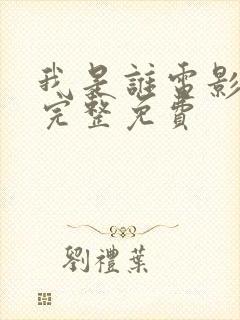 我是誰電影
完整免費
劉禮葉